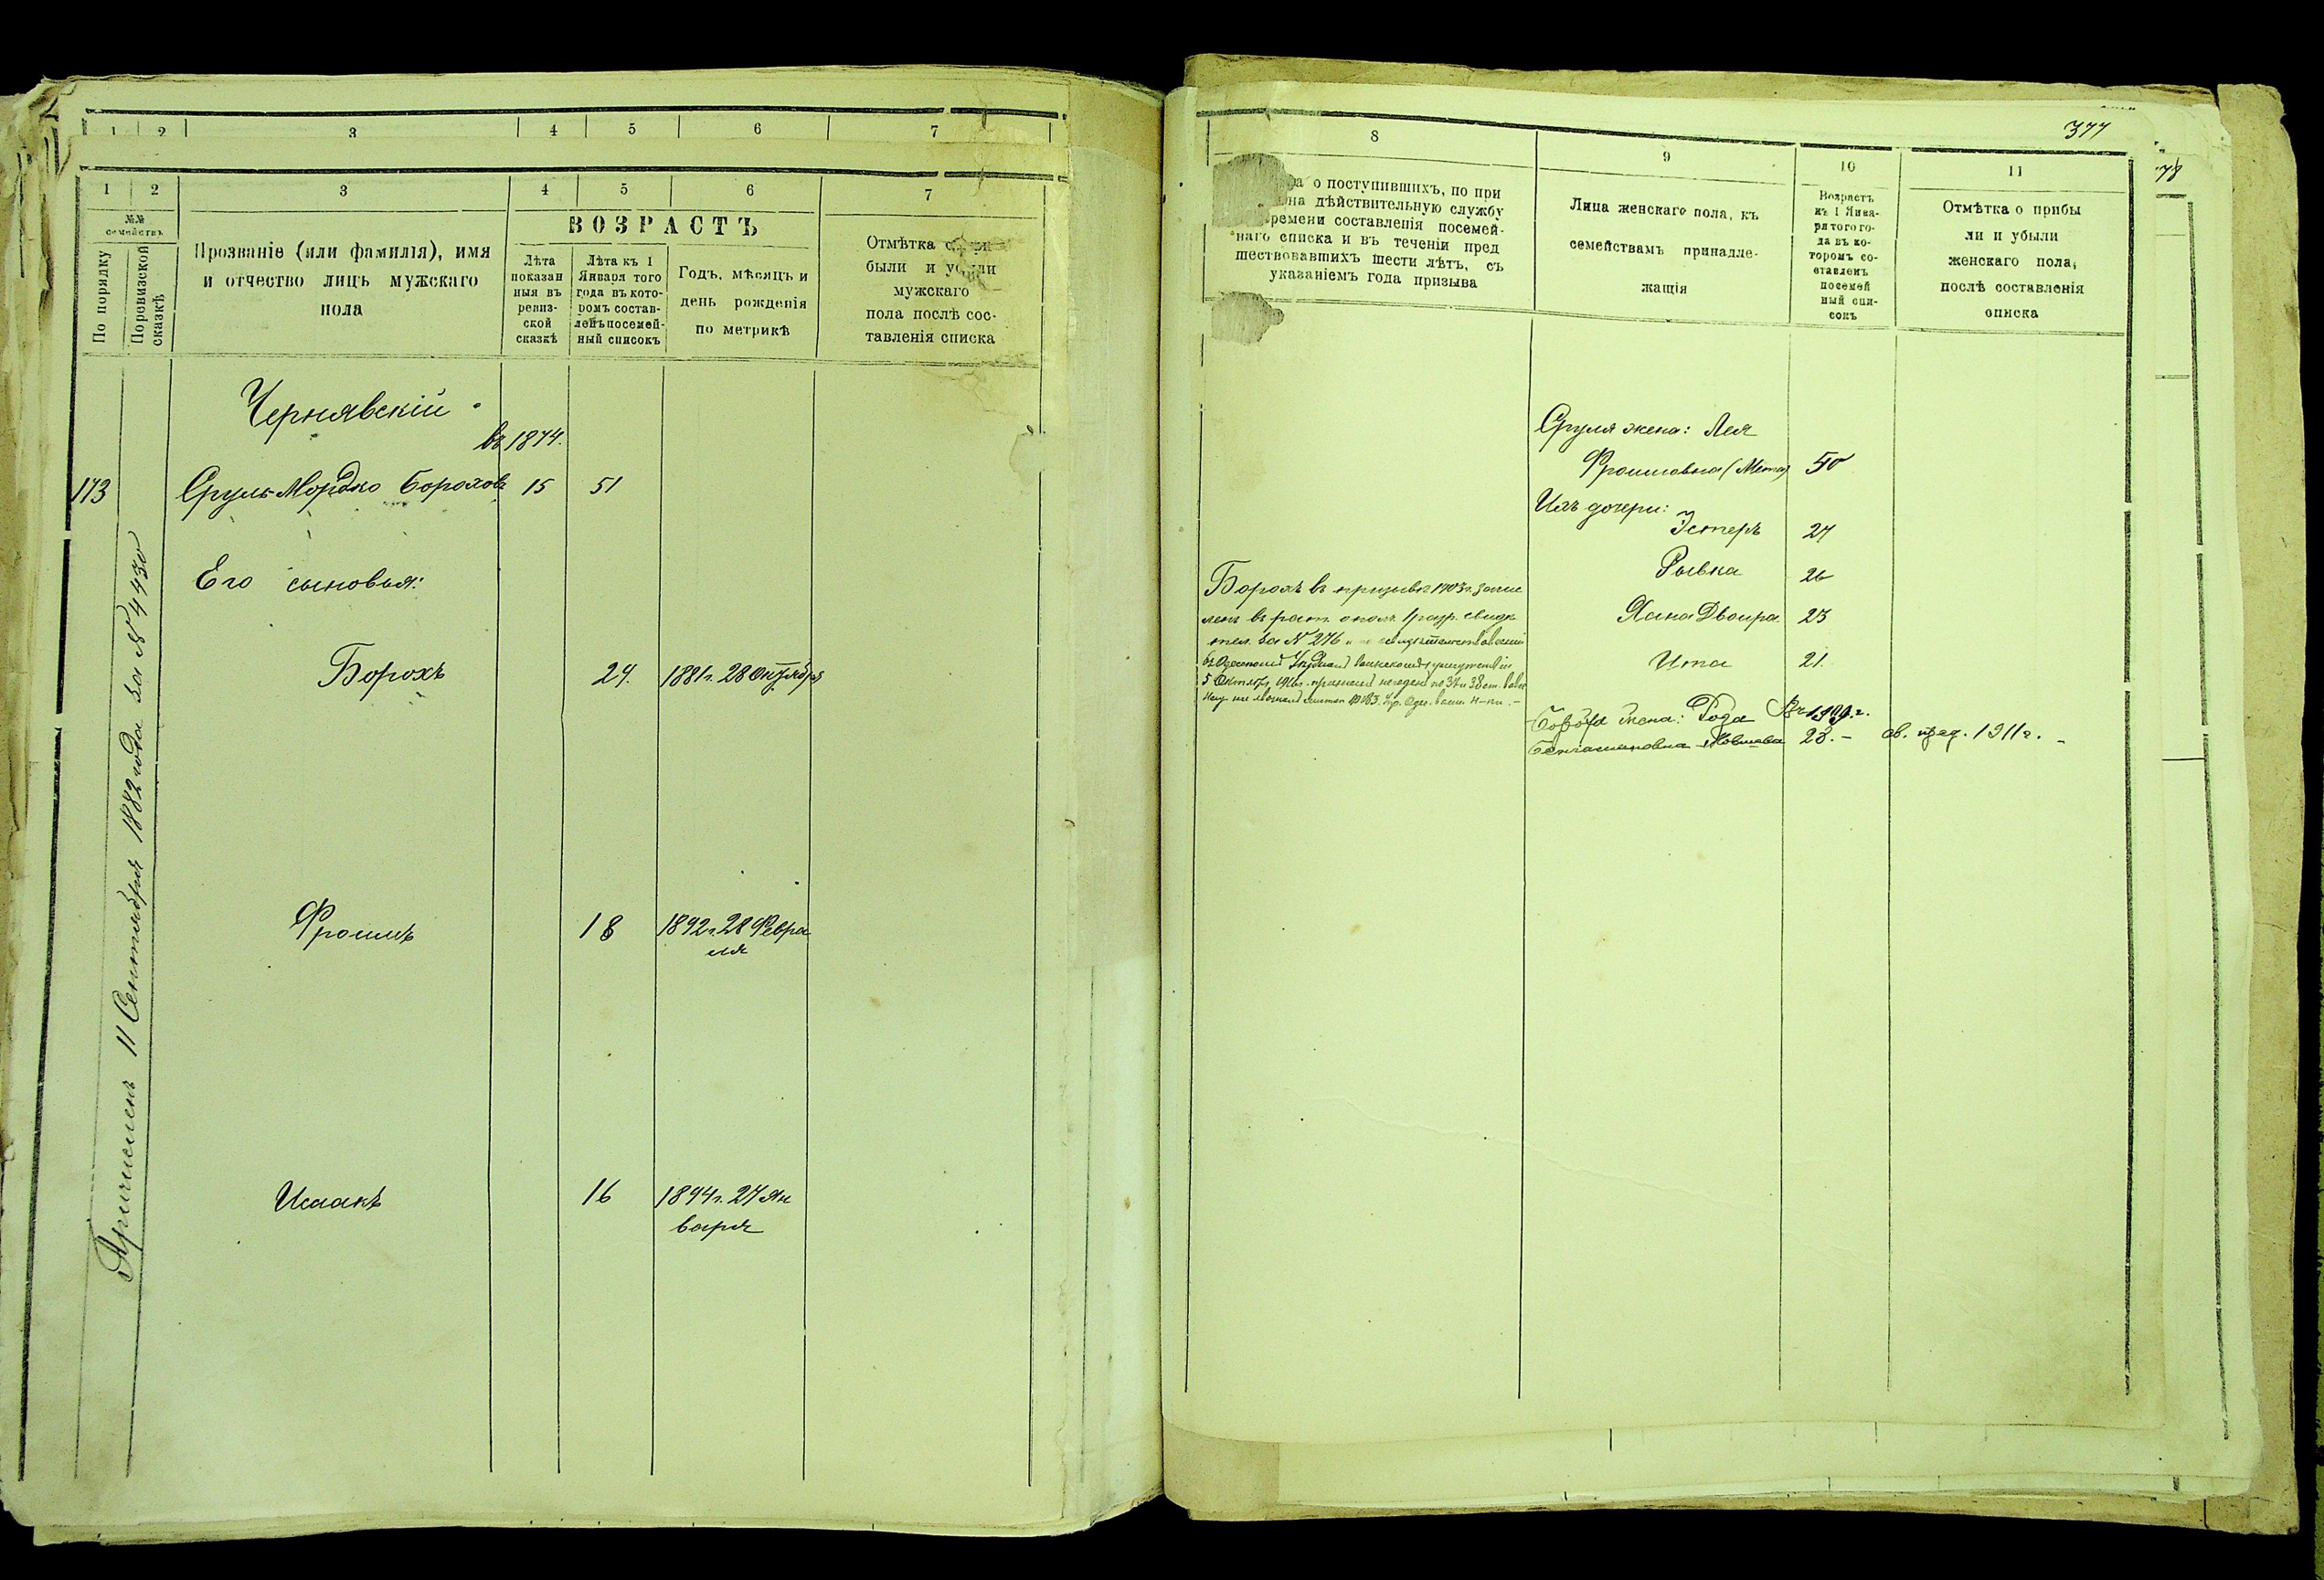 1 2 3 4 5 6 7
1 2 3 4 5 6 7
№№ семействъ
По порядку
По ревизской сказкѣ
Прозваніе (или фамилія), имя
и отчество лицъ мужскаго
пола
ВОЗРАСТЪ
Лѣта
показан
ныя въ
ревиз-
ской
сказкѣ
Лѣта къ 1
Января того
года въ кото-
ромъ состав-
ленъ посемей-
ный списокъ
Годъ, мѣсяцъ и
день рожденія
по метрикѣ
Отмѣтка о
были и убыли
мужскаго
пола послѣ сос-
тавленія списка
Чернявскій
въ 1874.
173 Сруль Мордко Бороховъ 15 51
Его сыновья:
Борохъ 24. 1881г. 28 Октября
Фроимъ 18 1892г. 28 Февра
ля
Исаакъ 16 1894г. 27 Ян
варя
Причисленъ 11 Сентября 1882 года за № 4430
377
78
8 9 10 11
о поступившихъ, по при
на дѣйствительную службу
времени составленія посемей-
наго списка и въ теченіи пред
шествовавшихъ шести лѣтъ, съ
указаніемъ года призыва
Лица женскаго пола, къ
семействамъ принадле-
жащія
Возрастъ
къ 1 Янва-
ря того го-
да въ ко-
торомъ со-
ставленъ
посемей
ный спи-
сокъ
Отмѣтка о прибы
ли и убыли
женскаго пола,
послѣ составленія
списка
Сруля жена: Лея
Фроимовна (Мета) 50
Ихъ дочери:
Эстеръ 27
Рывка 26
Хана Двоира 23
Ита 21.
Борохъ въ призывъ 1903г. зачис
ленъ въ рат. ополч. 1 разр. свидѣ
тел. за № 276
5 Октября 1916г.
Бороха жена: Рода Въ 1909г.
Беньяминовна 23.- св. 1911г. -